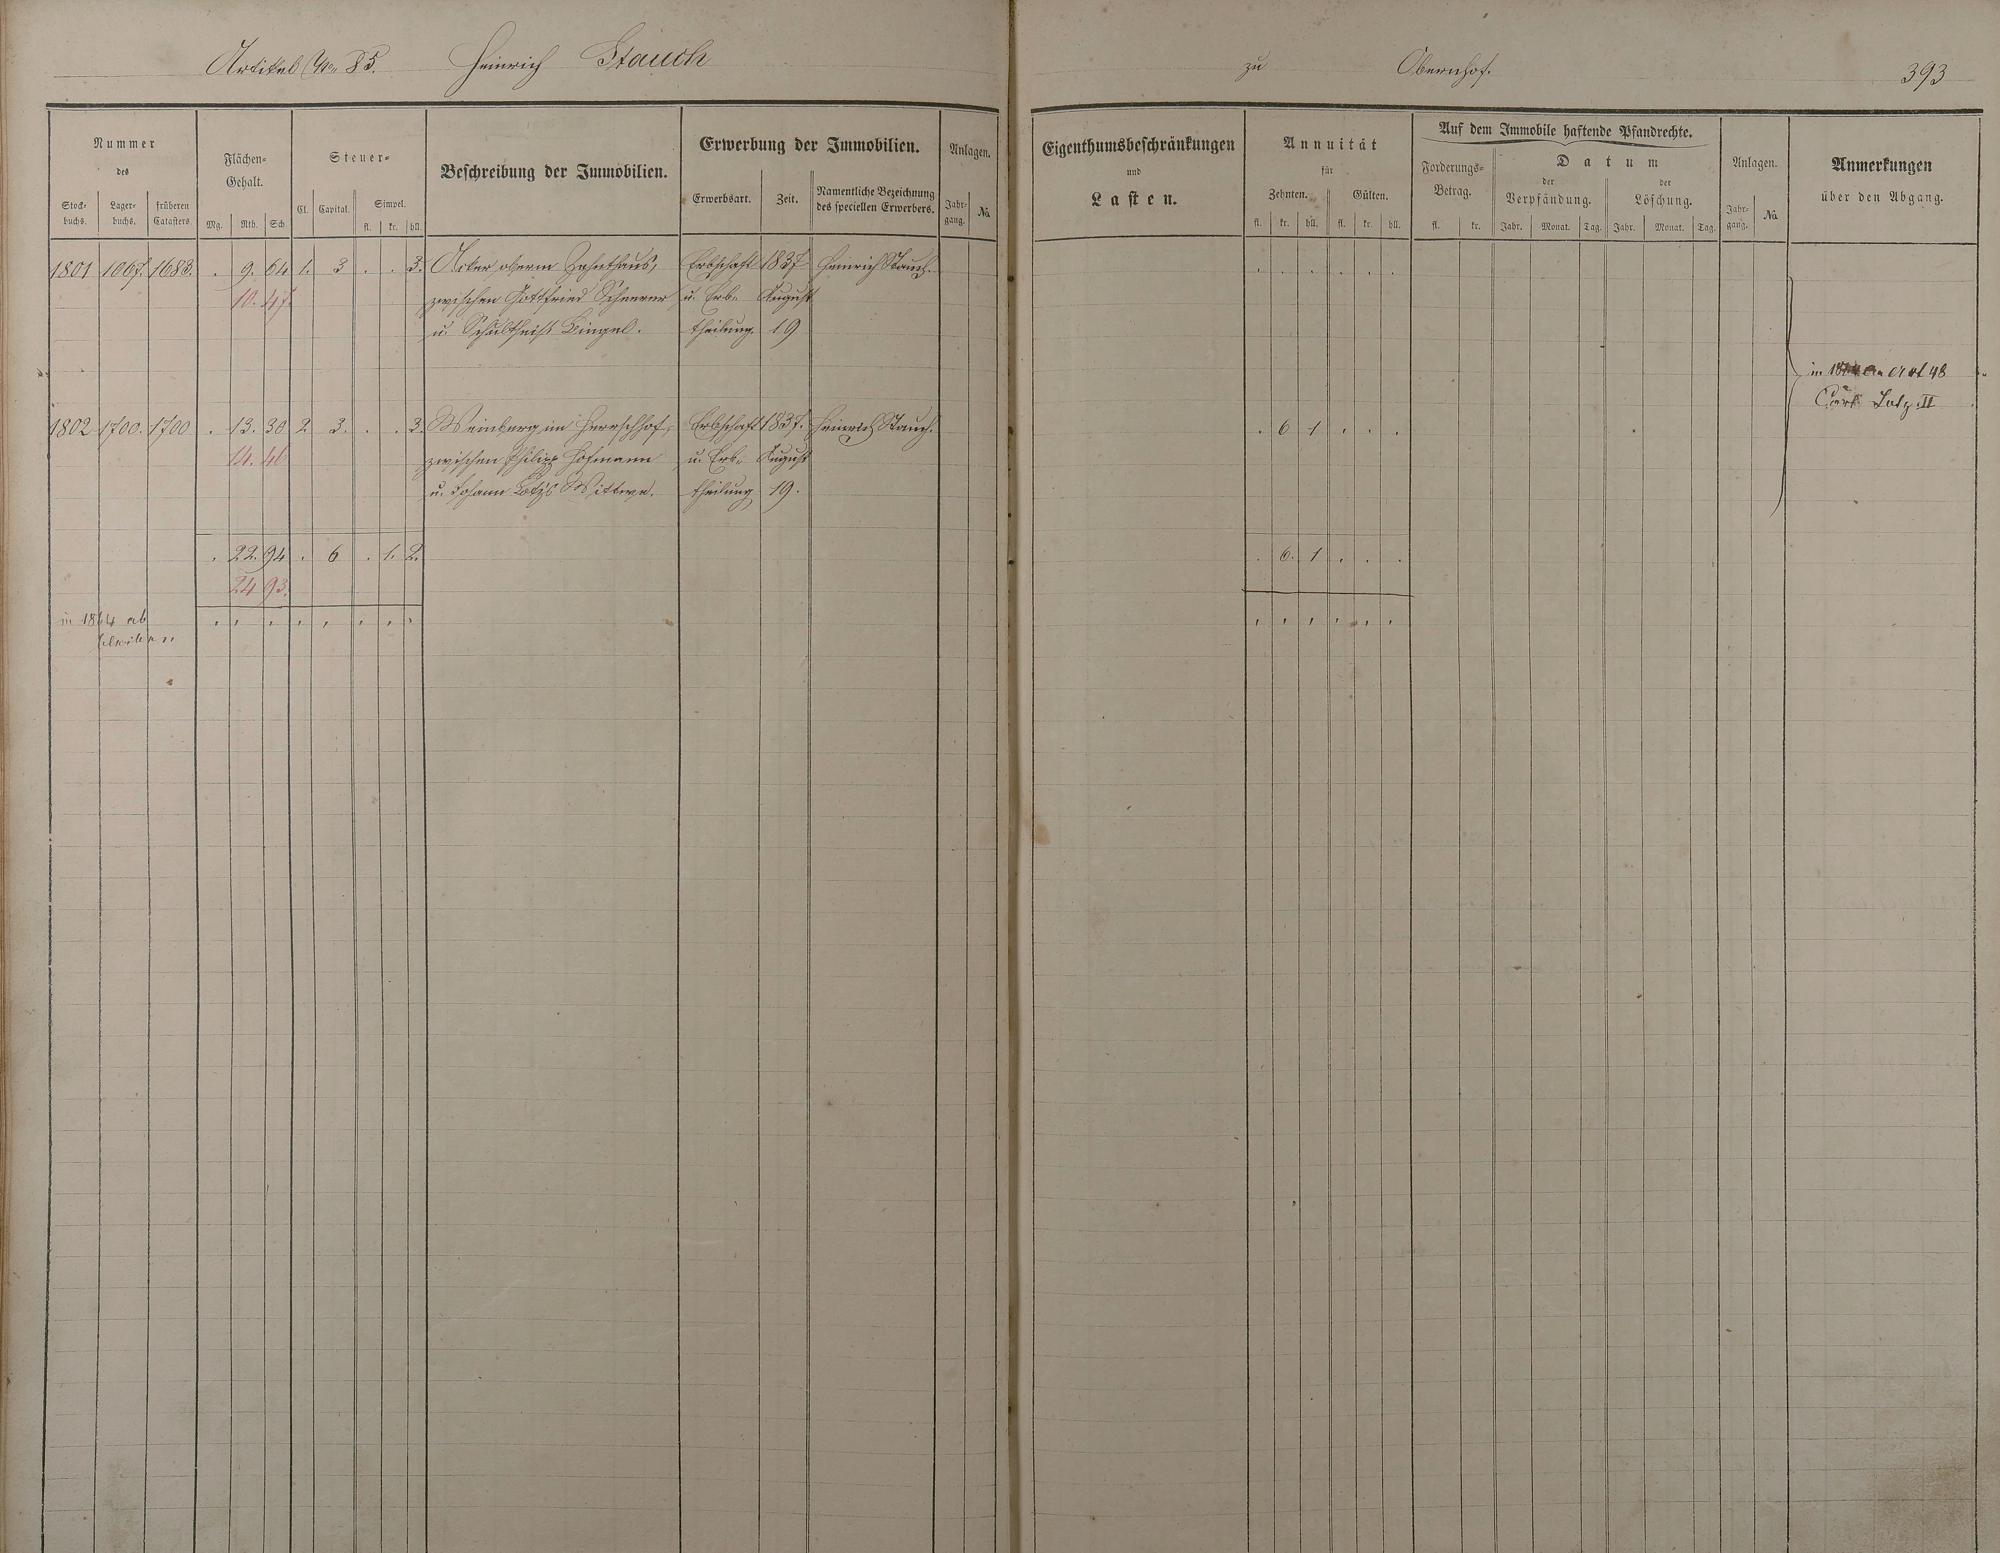 Artikel No. 85. Heinrich Stauch zu Obernhof. 393
Nummer
des
Stock-
buchs.
Lager-
buchs.
früheren
Catasters.
Flächen-
Gehalt.
Mg. Rth. Sch
Steuer-
Cl. Capital. Simpel.
fl. kr. hll.
Beschreibung der Immobilien.
Erwerbung der Immobilien.
Erwerbsart. Zeit. Namentliche Bezeichnung
des speciellen Erwerbers.
Anlagen.
Jahr-
gang. No
Eigenthumsbeschränkungen
und
Lasten.
Annuität
für
Zehnten. Gülten.
fl. kr. hll. fl. kr. hll.
Auf dem Immobile haftende Pfandrechte.
Forderungs-
Betrag.
fl. kr.
Datum
der
Verpfändung.
der
Löschung.
Jahr. Monat. Tag. Jahr. Monat. Tag.
Anlagen.
Jahr-
gang. No
Anmerkungen
über den Abgang.
1801 1067. 1683. . 9. 64 1. 3 . . 3. Acker oberm Zehnthaus, Erbschaft 1837 Heinrich Stauch. . . . . . .
10. 47 zwischen Gottfried Scheerer u. Erb- August
u. Schultheiß Bingel. theilung. 19
in art 48
Carl Lotz II
1802 1700. 1700 . 13. 30 2 3. . . 3. Weinberg im Herrschhof, Erbschaft 1837. Heinrich Stauch. . 6 1 . . .
14. 46 zwischen Philipp Hofmann u. Erb- August
u. Johann Lotz's Wittwe. theilung 19.
. 22. 94 . 6 . 1. 2. . 6. 1 . . .
24 93.
in 1864 ab